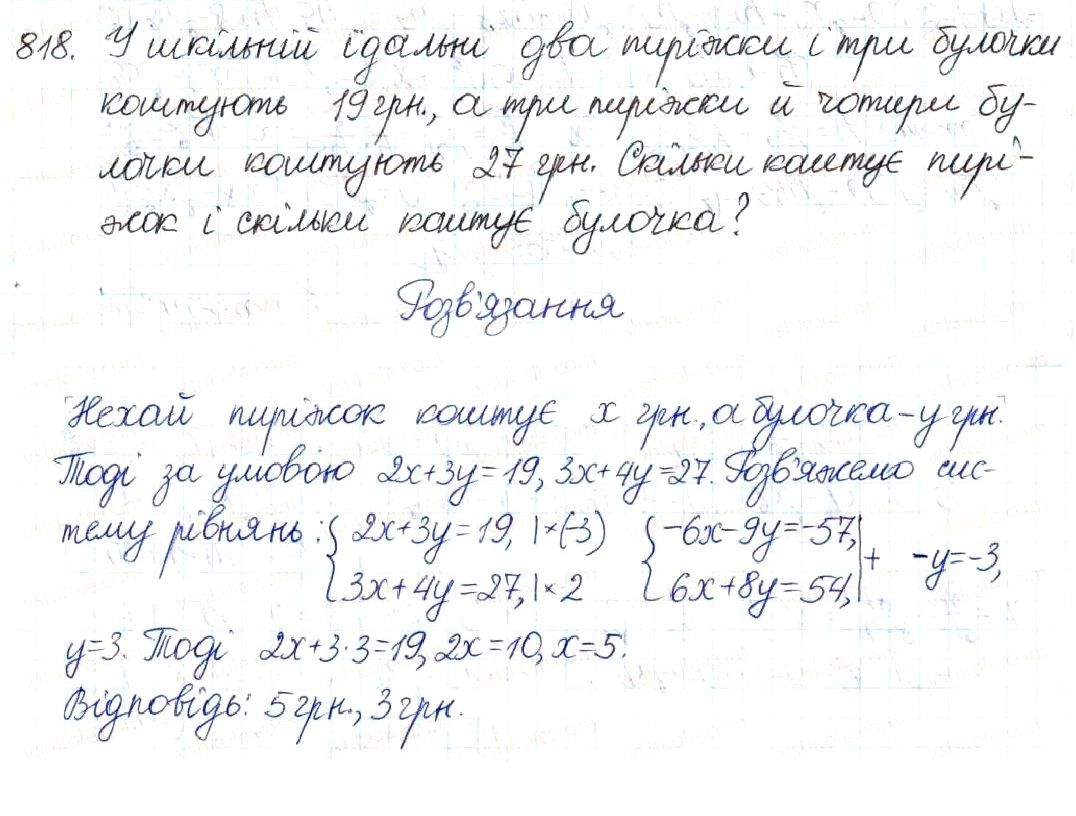 818. У шкільній їдальні два пиріжки і три булочки
коштують 19 грн., а три пиріжки й чотири бу-
лочки коштують 27 грн. Скільки коштує пирі-
жок і скільки коштує булочка?
Розв'язання
Нехай пиріжок коштує x грн., а булочка – y грн.
Тоді за умовою 2x+3y=19, 3x+4y=27. Розв'яжемо сис-
тему рівнянь: { 2x+3y=19, |×(-3) { -6x-9y=-57, | + -y=-3,
3x+4y=27, |×2 6x+8y=54, |
y=3. Тоді 2x+3·3=19, 2x=10, x=5.
Відповідь: 5 грн., 3 грн.